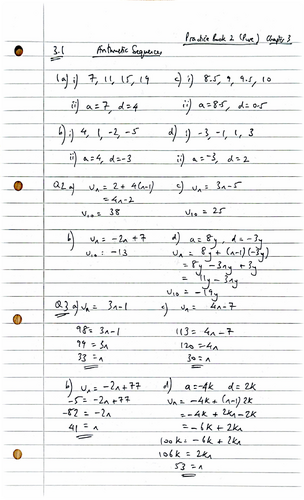 Practice Book 2 (Pure) Chapter 3
3.1 Arithmetic Sequences
1a) i) 7, 11, 15, 19 c) i) 8.5, 9, 9.5, 10
ii) a=7, d=4 ii) a=8.5, d=0.5
b) i) 4, 1, -2, -5 d) i) -3, -1, 1, 3
ii) a=4, d=-3 ii) a=-3, d=2
Q2 a) Un = 2 + 4(n-1) c) Un = 3n-5
= 4n-2
U10 = 38 U10 = 25
b) Un = -2n+7 d) a=8y, d=-3y
U10 = -13 Un = 8y + (n-1)(-3y)
= 8y - 3ny + 3y
= 11y - 3ny
U10 = -19y
Q3 a) Un = 3n-1 c) Un = 4n-7
98 = 3n-1 113 = 4n-7
99 = 3n 120 = 4n
33 = n 30 = n
b) Un = -2n+77 d) a=-4k d=2k
-5 = -2n+77 Un = -4k + (n-1)2k
-82 = -2n = -4k + 2kn - 2k
41 = n = -6k + 2kn
100k = -6k + 2kn
106k = 2kn
53 = n